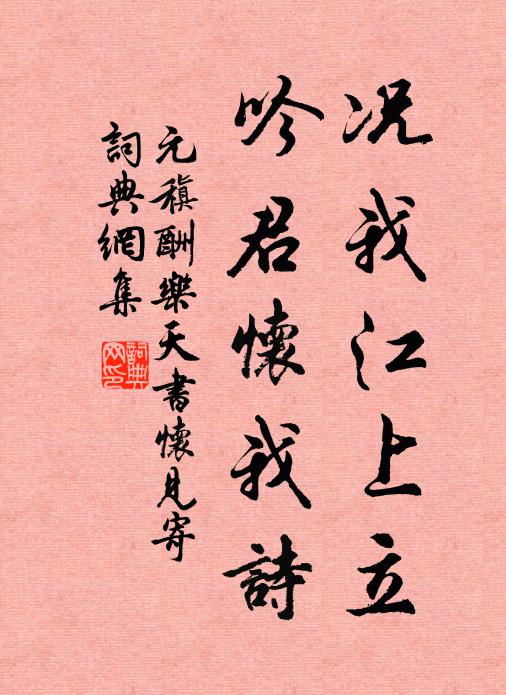 况我江上立
吟君懷我詩
元稹酬樂天書懷見寄
詞典網集
詞典網印